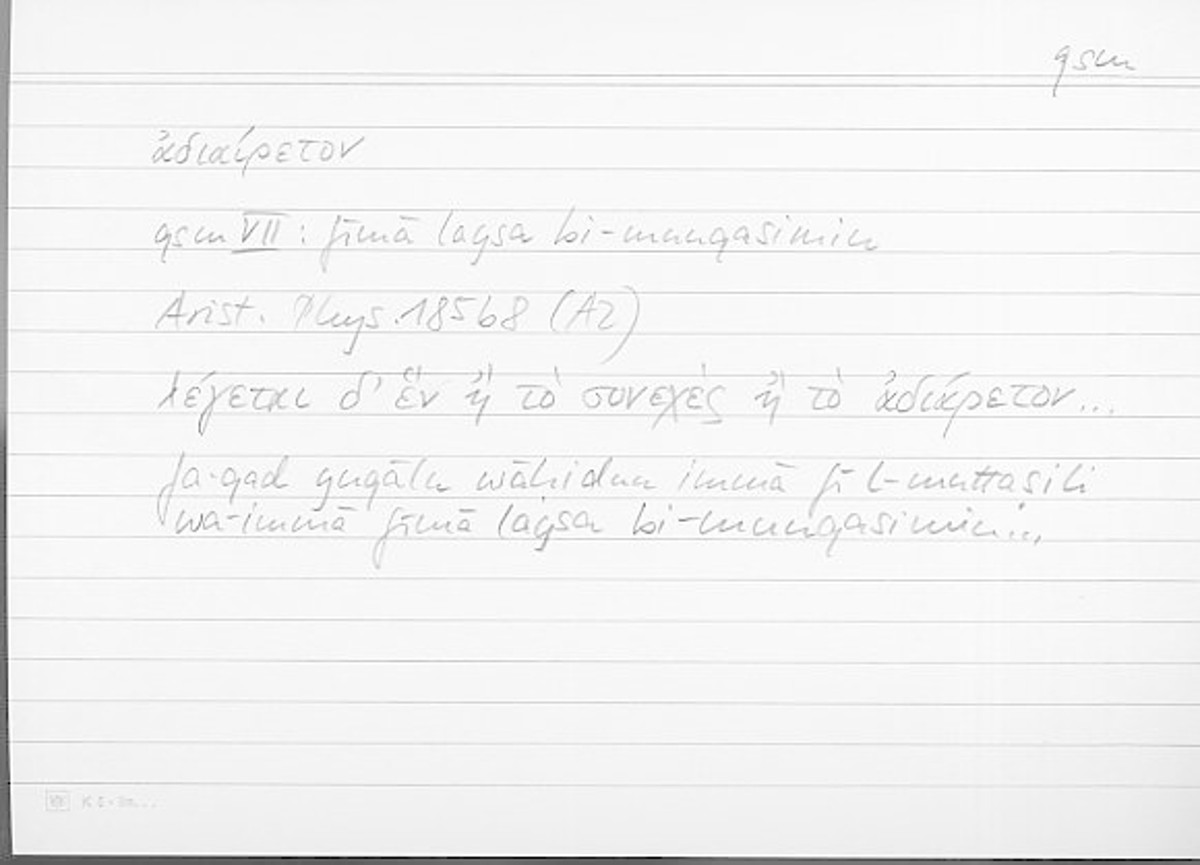 qsm
ἀδιαίρετον
qsm VII: fīmā laysa bi-munqasimin
Arist. Phys. 185b8 (A2)
λέγεται δ' ἓν ἢ τὸ συνεχὲς ἢ τὸ ἀδιαίρετον...
fa-qad yuqālu wāhidun immā fī l-muttasili
wa-immā fīmā laysa bi-munqasimin...